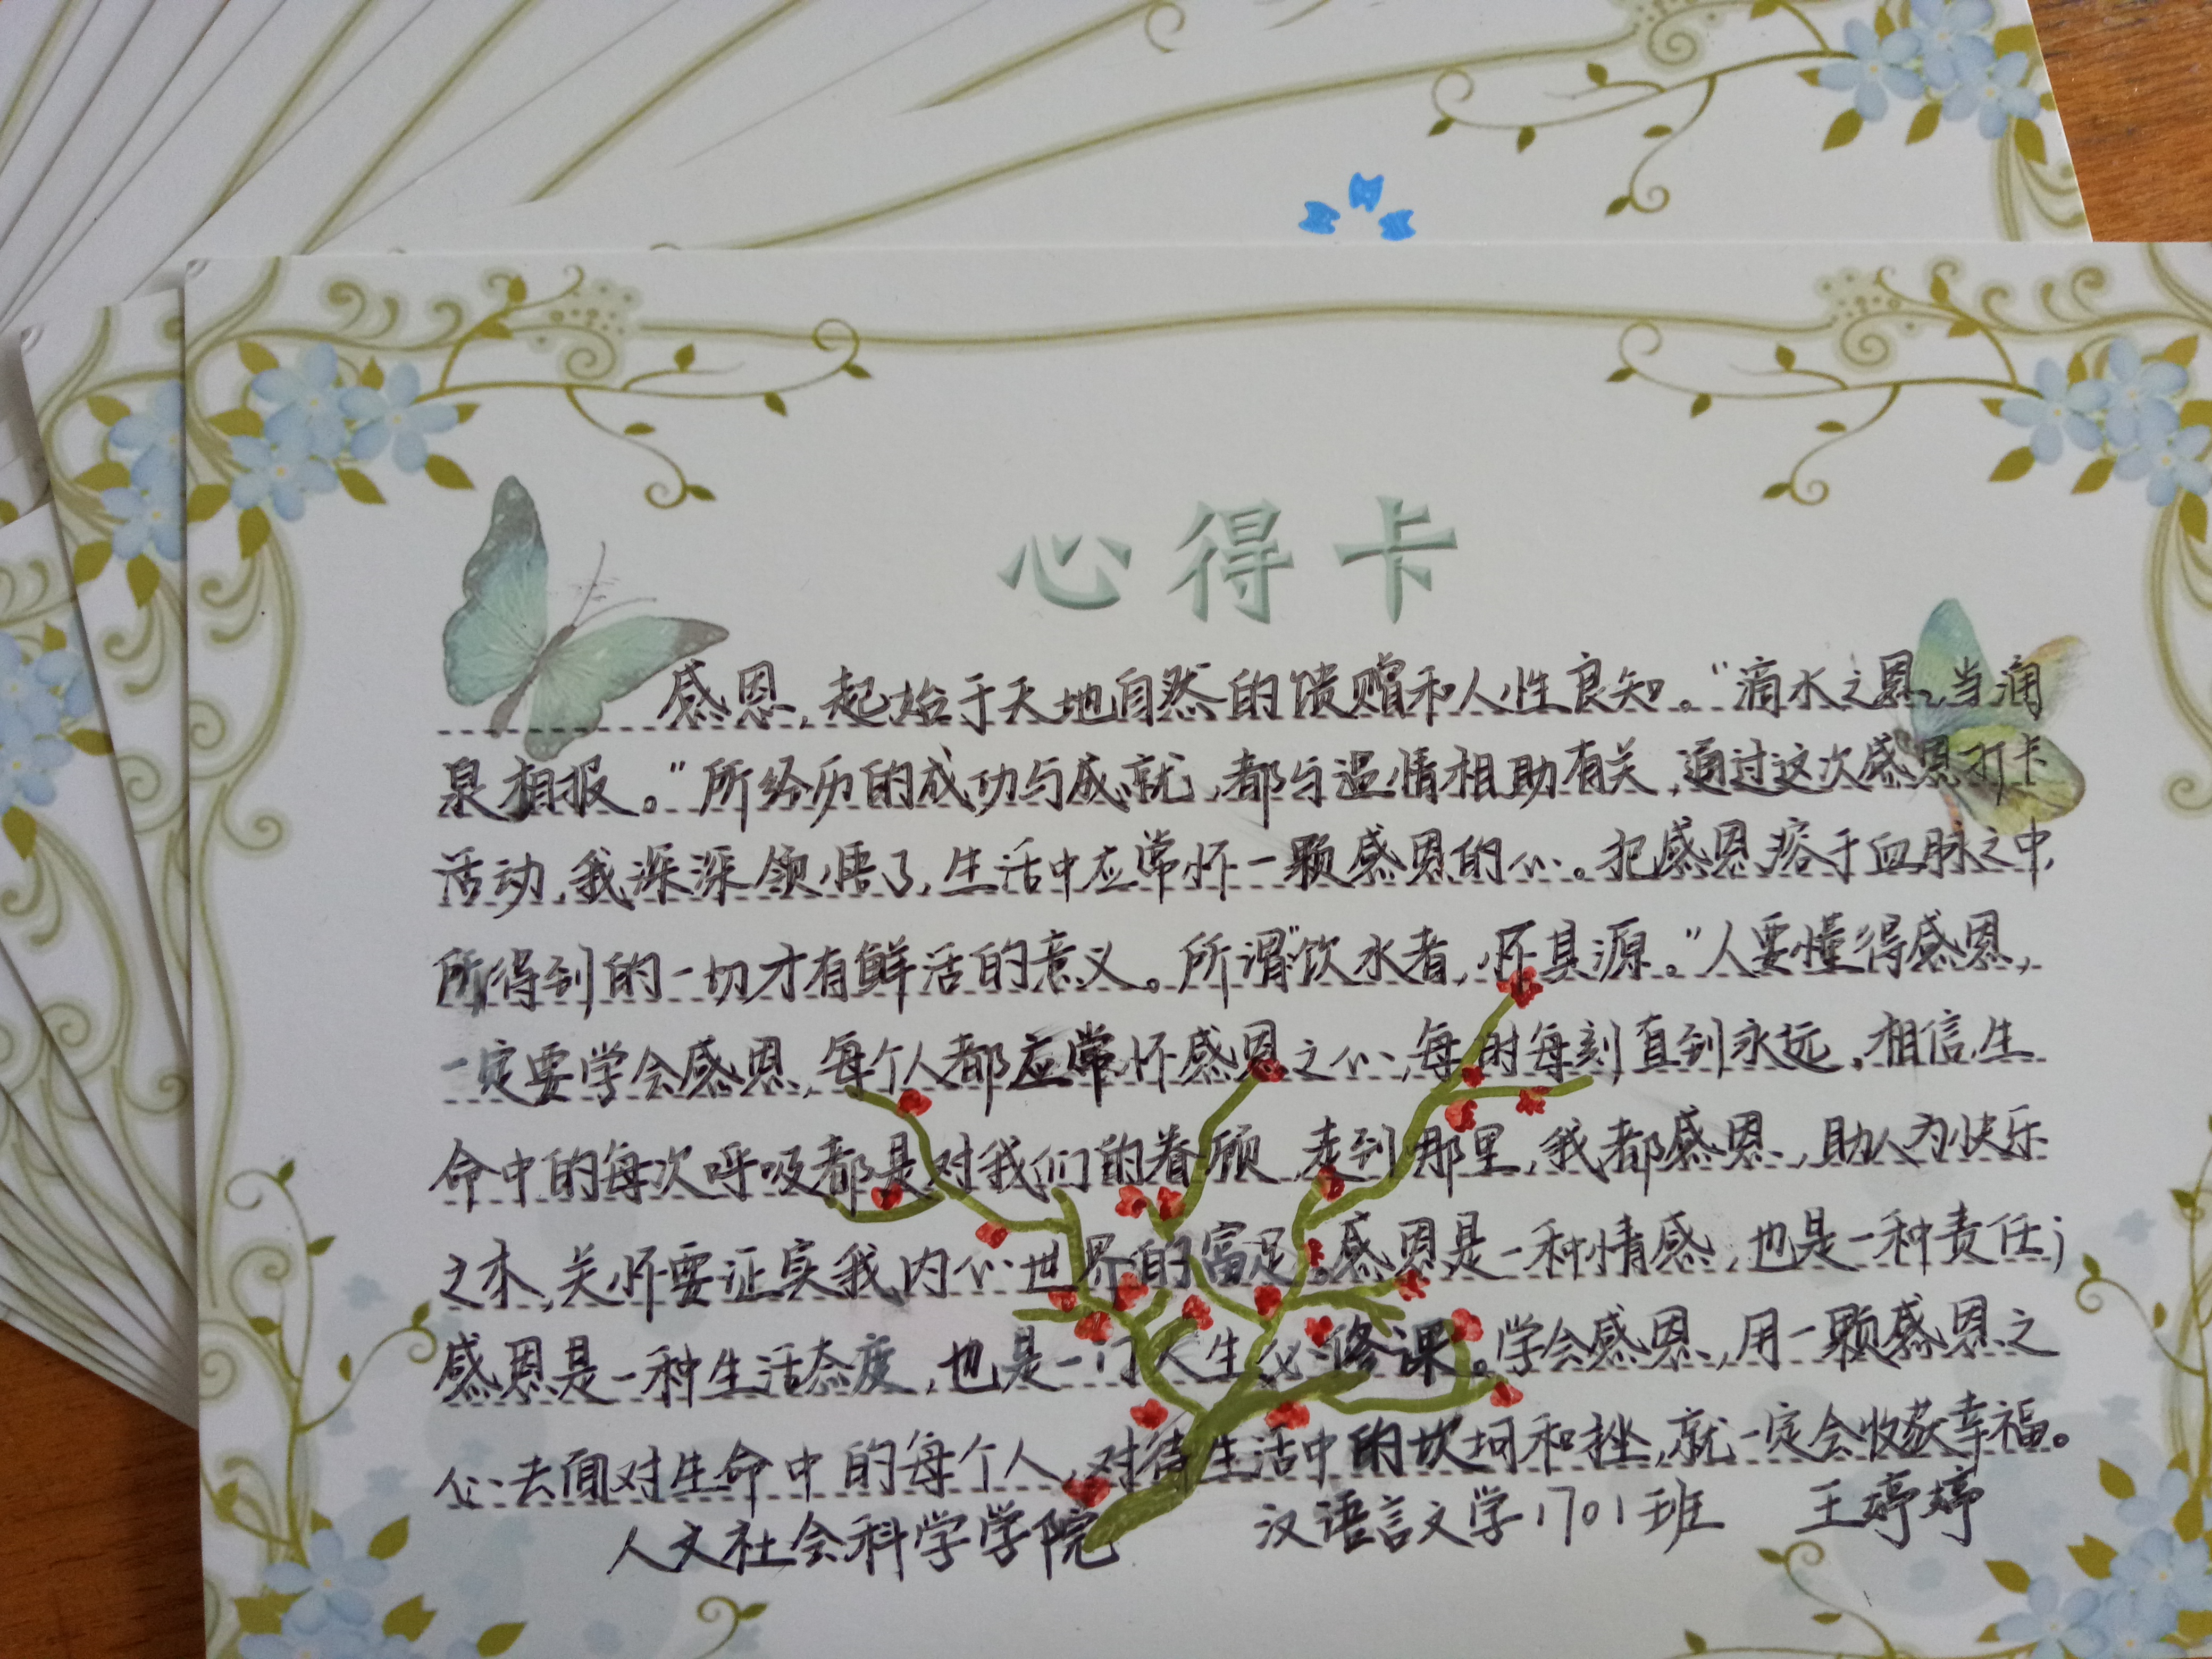 心得卡
感恩,起始于天地自然的馈赠和人性良知。“滴水之恩,当涌
泉相报。”所经历的成功与成就,都与温情相助有关,通过这次感恩打卡
活动,我深深领悟了,生活中应常怀一颗感恩的心。把感恩溶于血脉之中,
所得到的一切才有鲜活的意义。所谓“饮水者,怀其源。”人要懂得感恩,
一定要学会感恩,每个人都应常怀感恩之心,每时每刻直到永远,相信生
命中的每次呼吸都是对我们的眷顾,走到那里,我都感恩,助人为快乐
之本,关怀要证实我内心世界的富足。感恩是一种情感,也是一种责任;
感恩是一种生活态度,也是一门人生必修课。学会感恩,用一颗感恩之
心去面对生命中的每个人,对待生活中的坎坷和挫,就一定会收获幸福。
人文社会科学学院 汉语言文学1701班 王婷婷